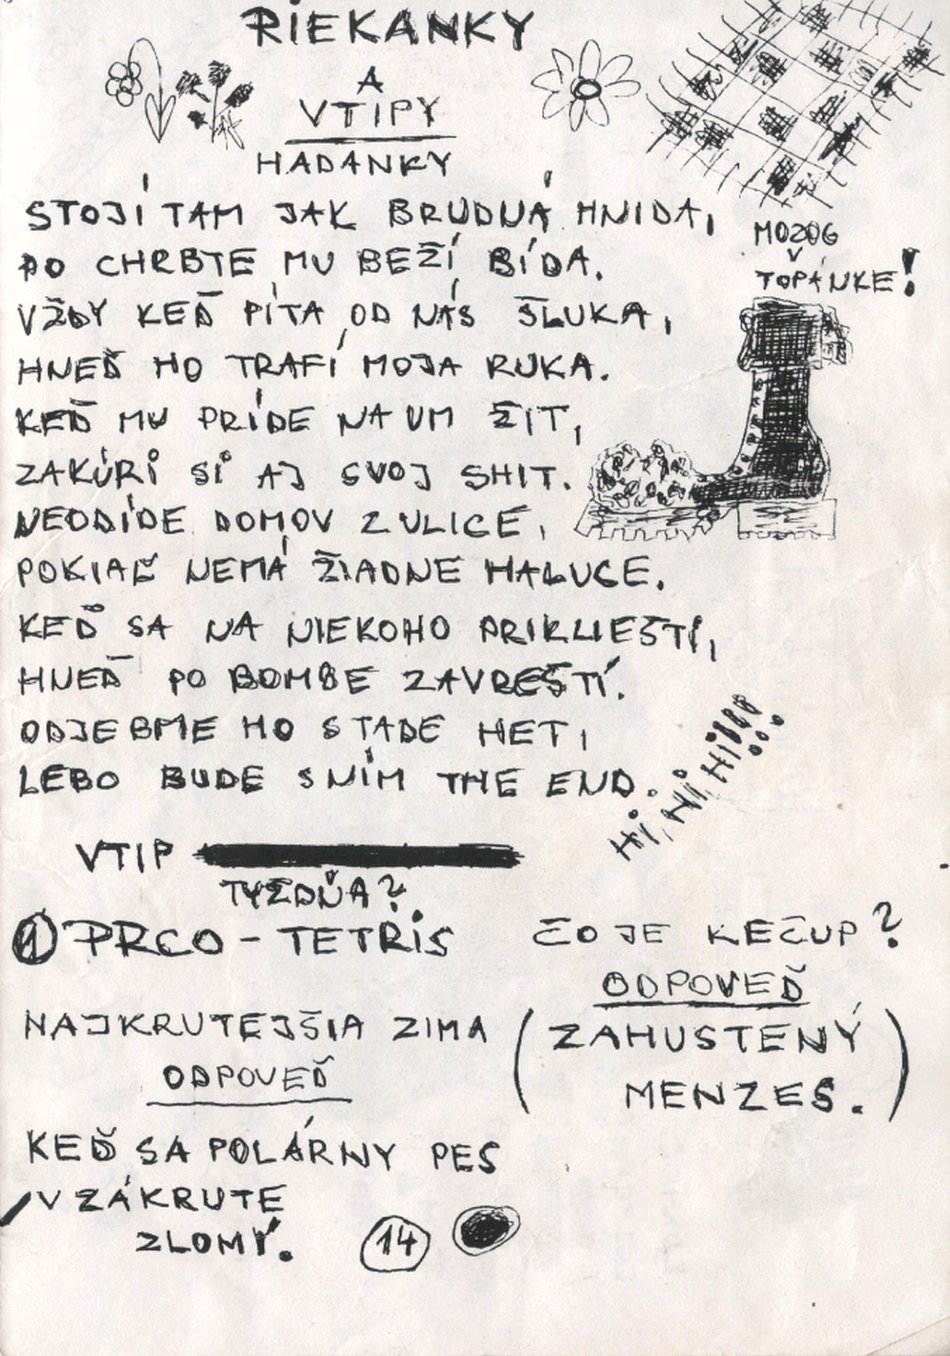 RIEKANKY
A
VTIPY
HÁDANKY
STOJÍ TAM JAK BRUDNÁ HNIDA,
PO CHRBTE MU BEŽÍ BÍDA.
VŽDY KEĎ PÍTA OD NÁS ŠLUKA,
HNEĎ HO TRAFÍ MOJA RUKA.
KEĎ MU PRÍDE NA UM ŽIT,
ZAKÚRI SI AJ SVOJ SHIT.
NEODÍDE DOMOV Z ULICE,
POKIAĽ NEMÁ ŽIADNE HALUCE.
KEĎ SA NA NIEKOHO PRIKLIEŠTÍ,
HNEĎ PO BOMBE ZAVREŠTÍ.
ODJEBME HO STADE HET,
LEBO BUDE S NÍM THE END.
MOZOG
V
TOPÁNKE!
HI, HI, HI!!!!
VTIP
TÝŽDŇA?
1 PRCO - TETRIS
NAJKRUTEJŠIA ZIMA
ODPOVEĎ
KEĎ SA POLÁRNY PES
V ZÁKRUTE
ZLOMÝ.
ČO JE KEČUP?
ODPOVEĎ
(ZAHUSTENÝ
MENZES.)
14